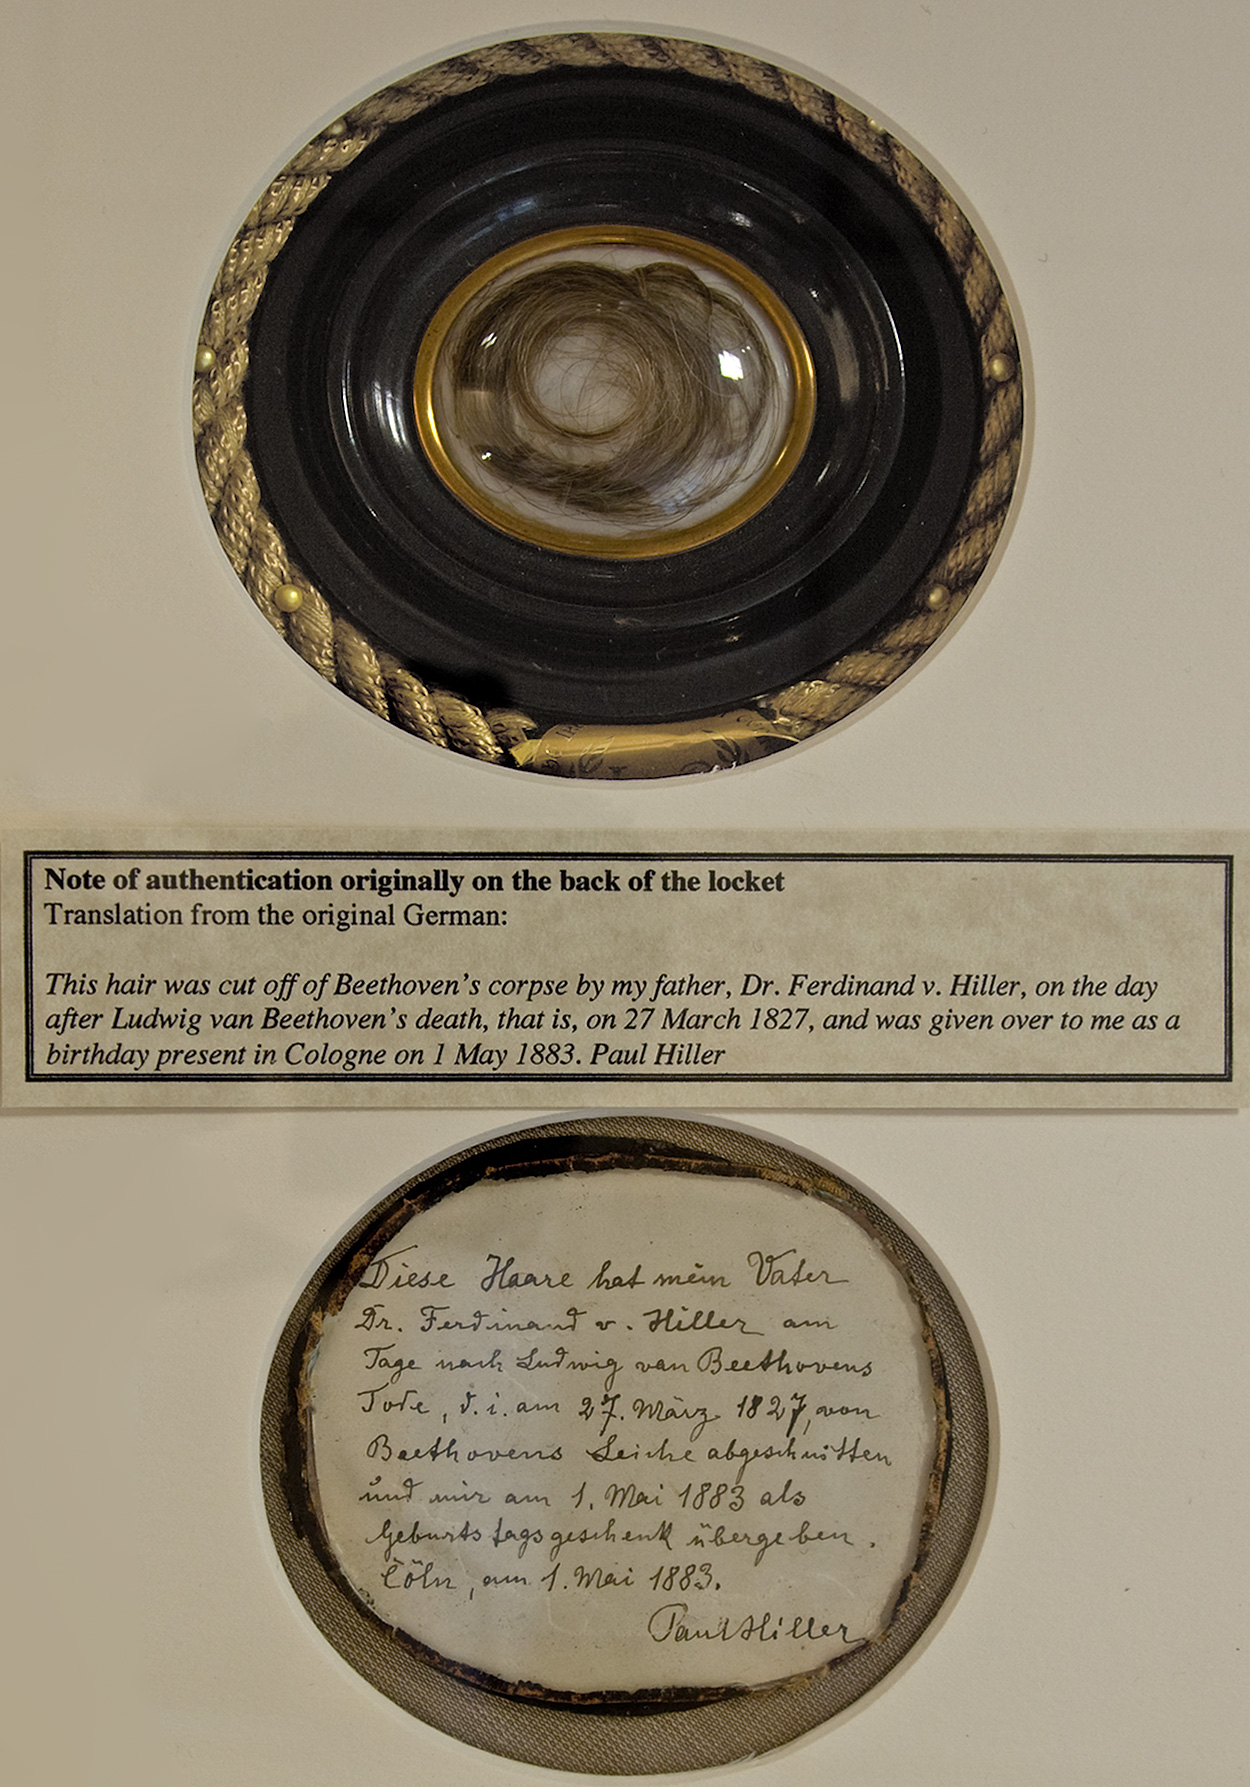 Note of authentication originally on the back of the locket
Translation from the original German:
This hair was cut off of Beethoven's corpse by my father, Dr. Ferdinand v. Hiller, on the day
after Ludwig van Beethoven's death, that is, on 27 March 1827, and was given over to me as a
birthday present in Cologne on 1 May 1883. Paul Hiller
Diese Haare hat mein Vater
Dr. Ferdinand v. Hiller am
Tage nach Ludwig van Beethovens
Tode, d. i. am 27. März 1827, von
Beethovens Leiche abgeschnitten
und mir am 1. Mai 1883 als
Geburtstagsgeschenk übergeben.
Cöln, am 1. Mai 1883.
Paul Hiller